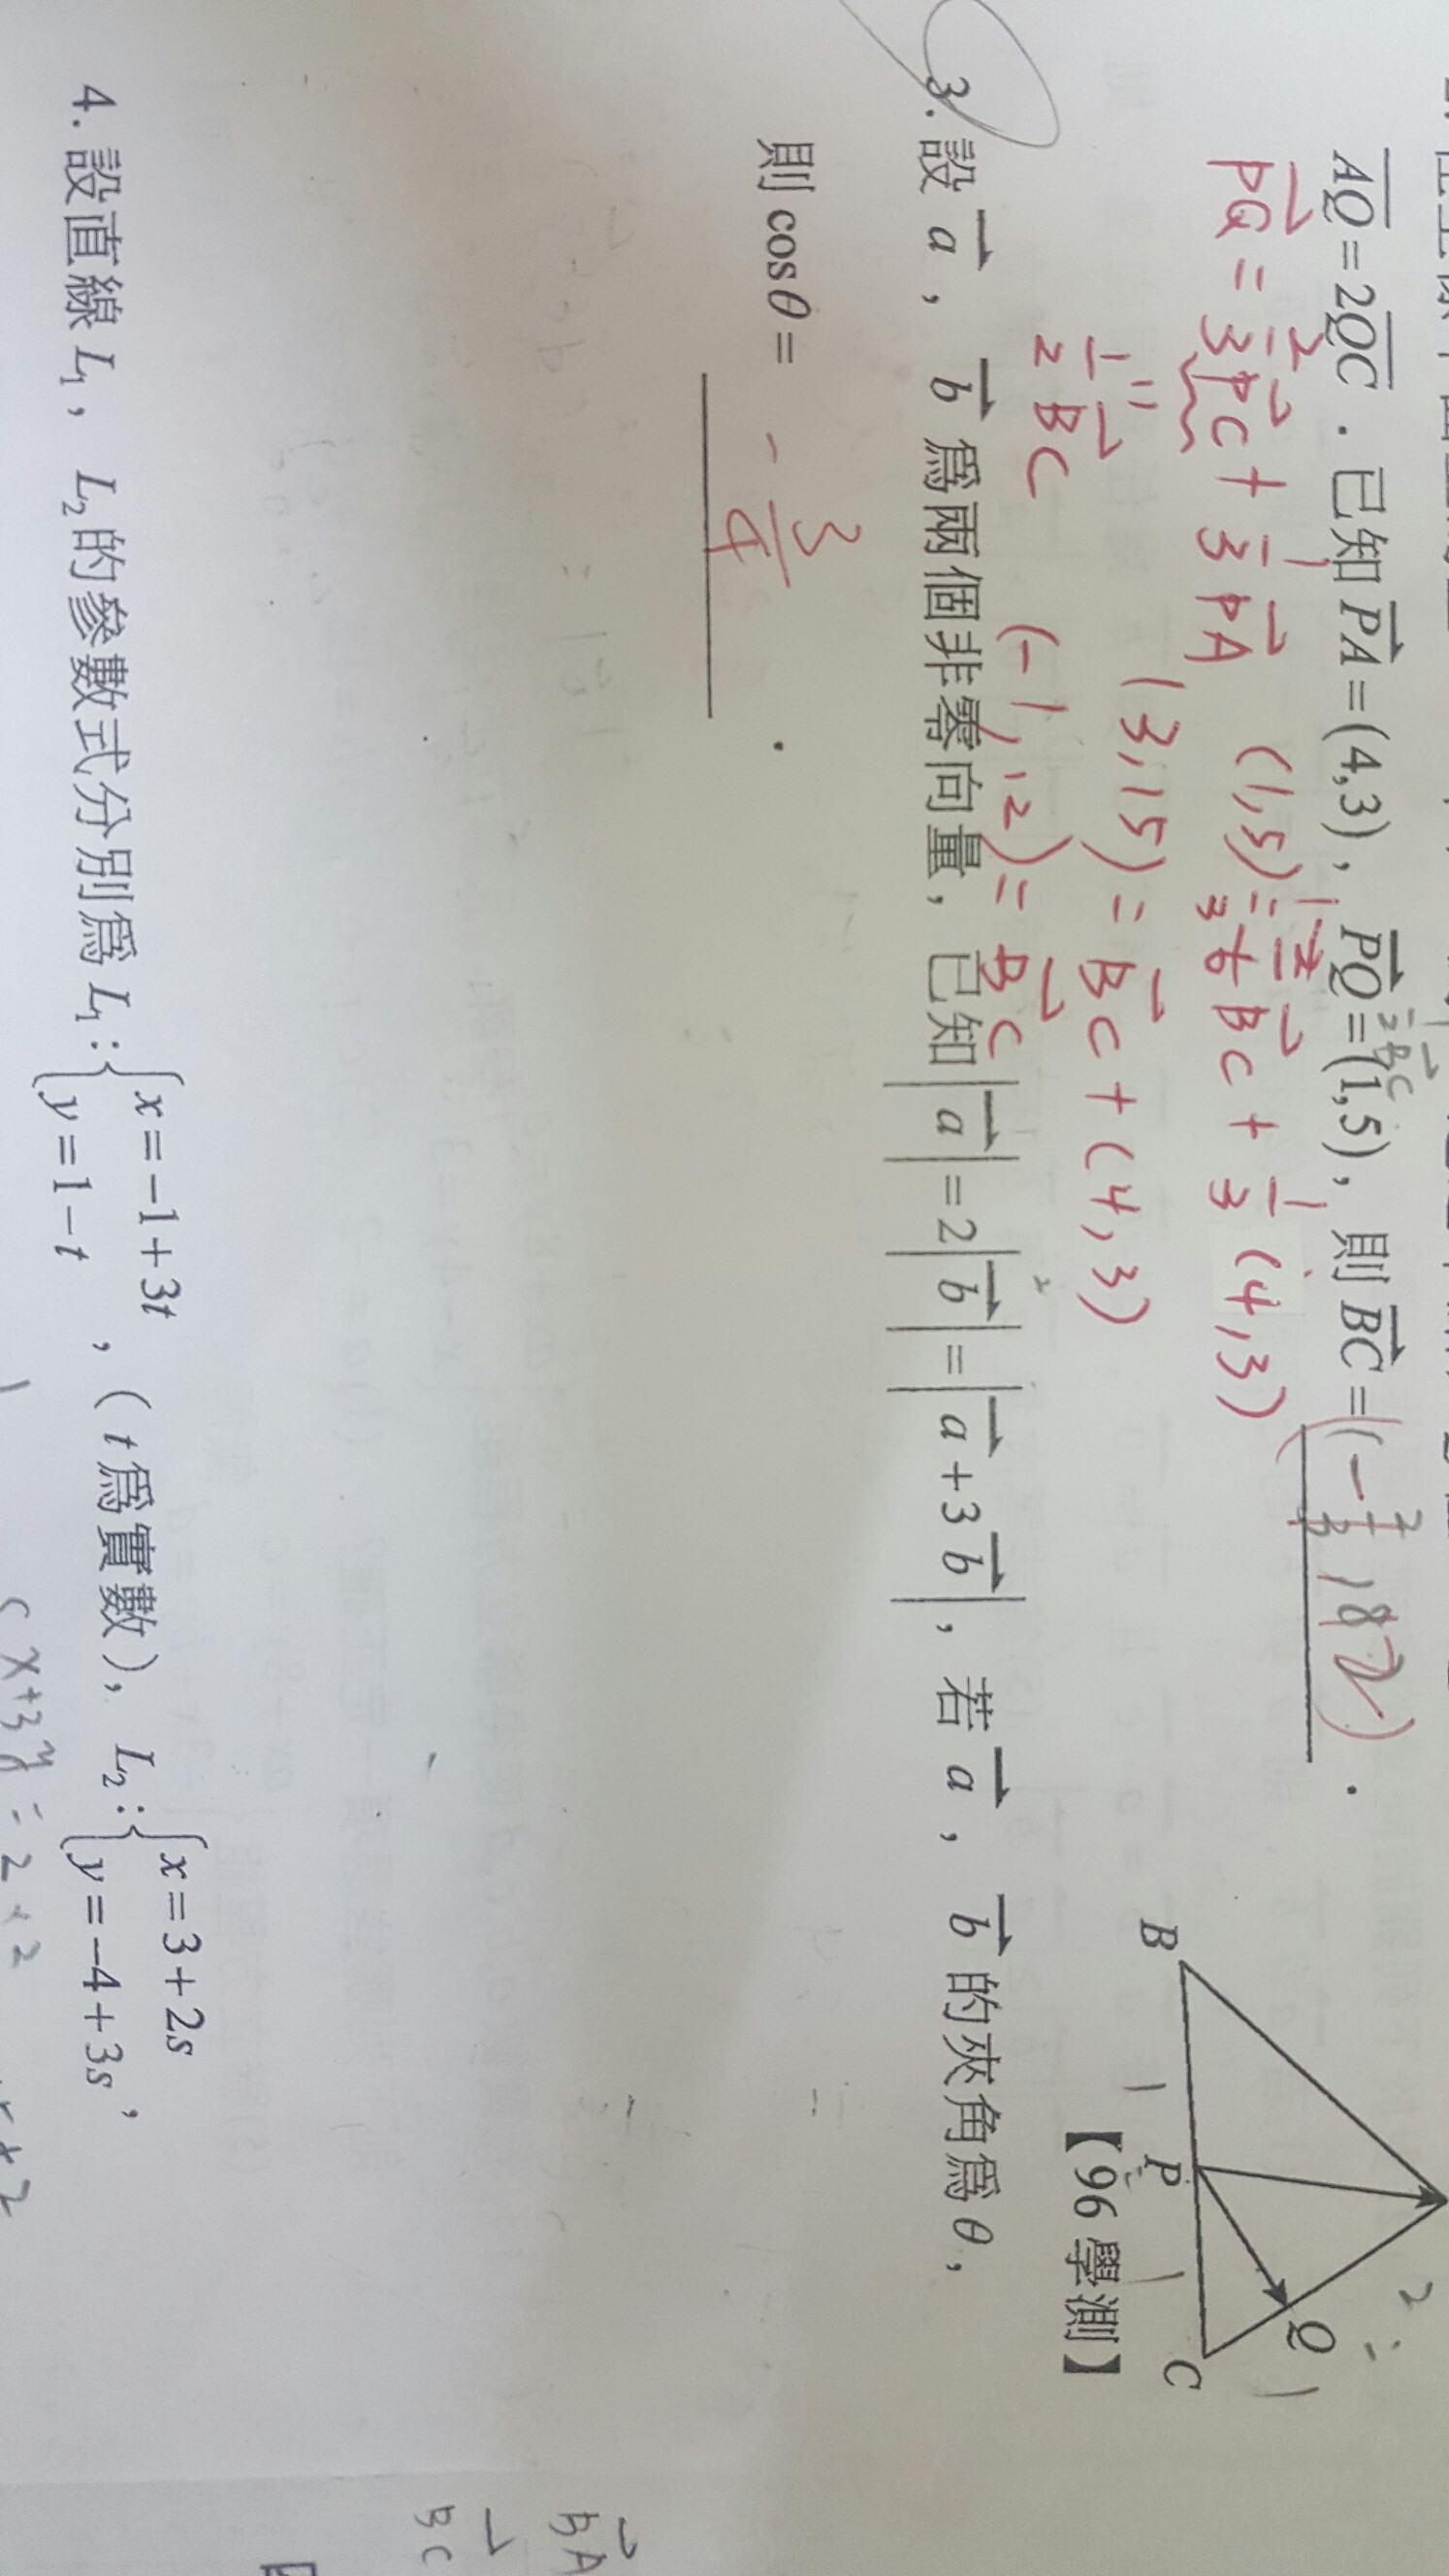 AQ=2QC．已知PA=(4,3)，PQ=(1,5)，則BC=(-1,12)．
PQ = 2/3 PC + 1/3 PA (1,5) = 1/3 BC + 1/3 (4,3)
1/2 BC (3,15) = BC + (4,3)
(-1,12) = BC
B P C Q
1 1 2 : 1
【96 學測】
3. 設 a，b 為兩個非零向量，已知|a|=2|b|=|a+3b|，若 a，b 的夾角為θ，
則 cosθ= -3/4 ．
4. 設直線 L₁，L₂的參數式分別為 L₁:{x=-1+3t y=1-t，（t 為實數），L₂:{x=3+2s y=-4+3s，
x+3y = 2
BA
BC